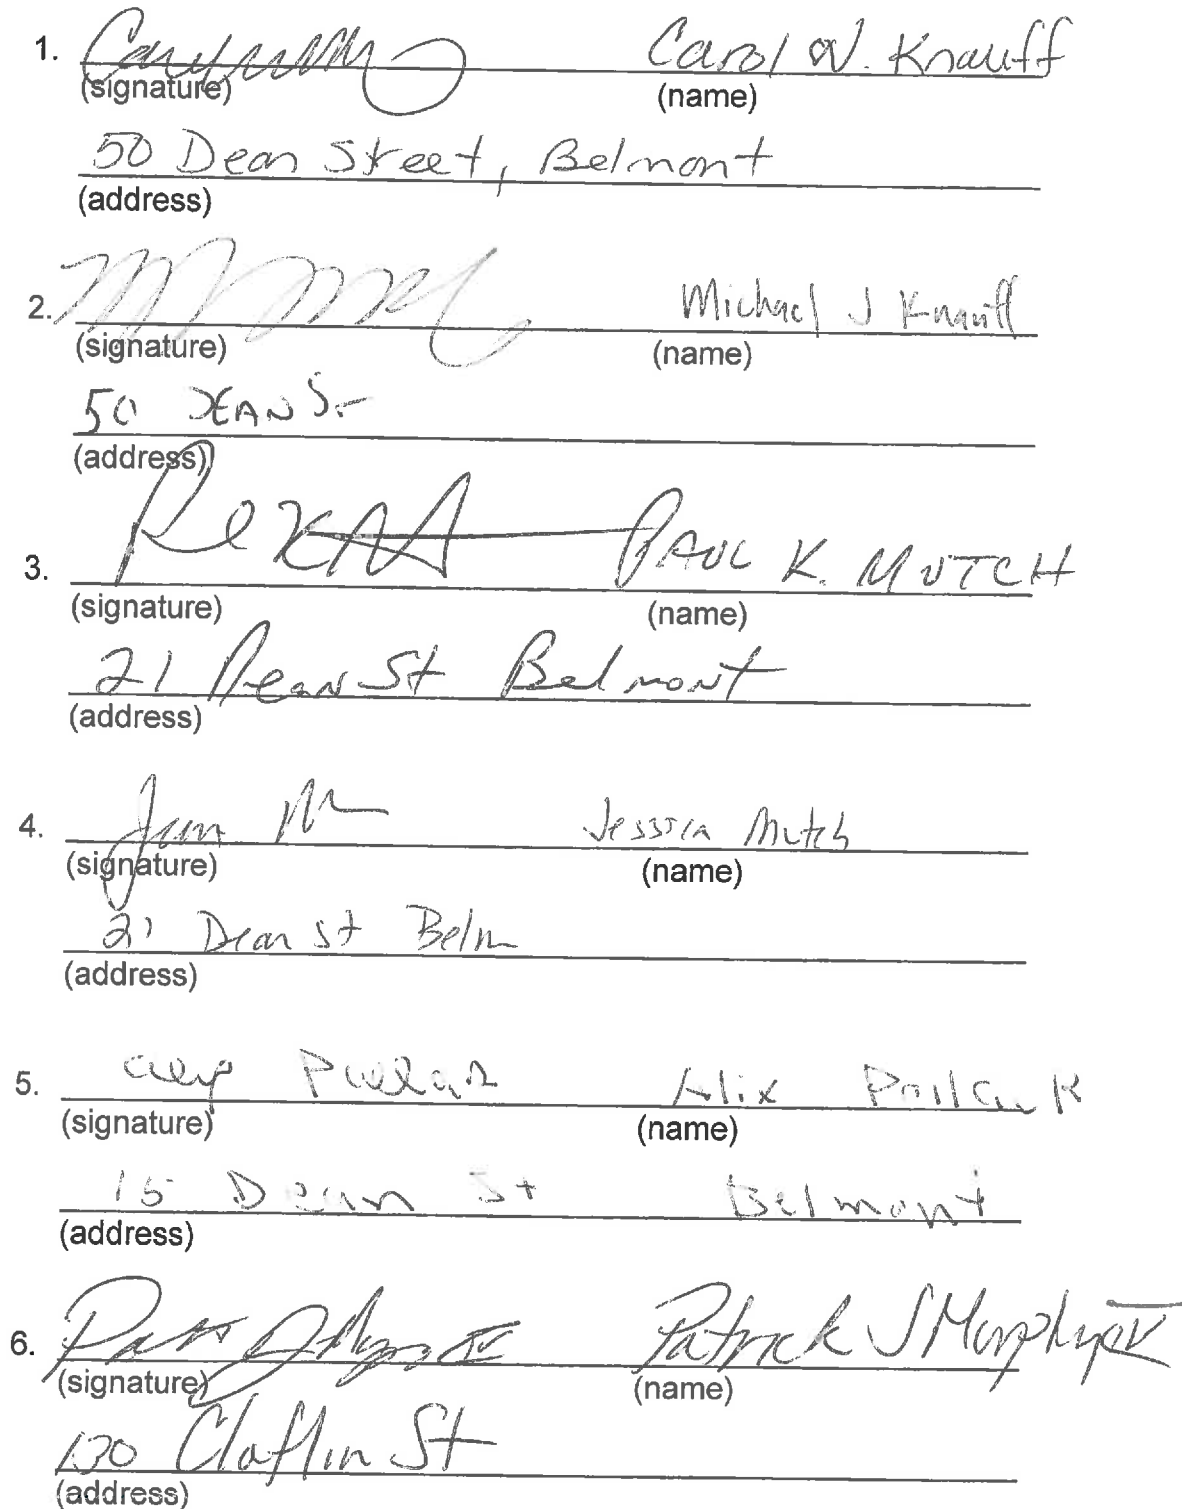 1. Carol W. Knauff
(signature) (name)
50 Dean Street, Belmont
(address)
2. Michael J Knauff
(signature) (name)
50 DEAN St
(address)
3. PAUL K. MUTCH
(signature) (name)
21 Dean St Belmont
(address)
4. Jessica Mutch
(signature) (name)
21 Dean St Belm
(address)
5. Alix Pollack
(signature) (name)
15 Dean St Belmont
(address)
6. Patrick J Murphy IV
(signature) (name)
130 Claflin St
(address)